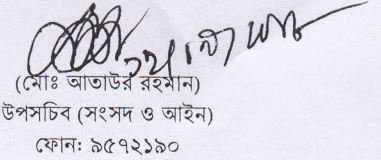 (মোঃ আতাউর রহমান)
উপসচিব (সংসদ ও আইন)
ফোন: ৯৫৭২১৯০